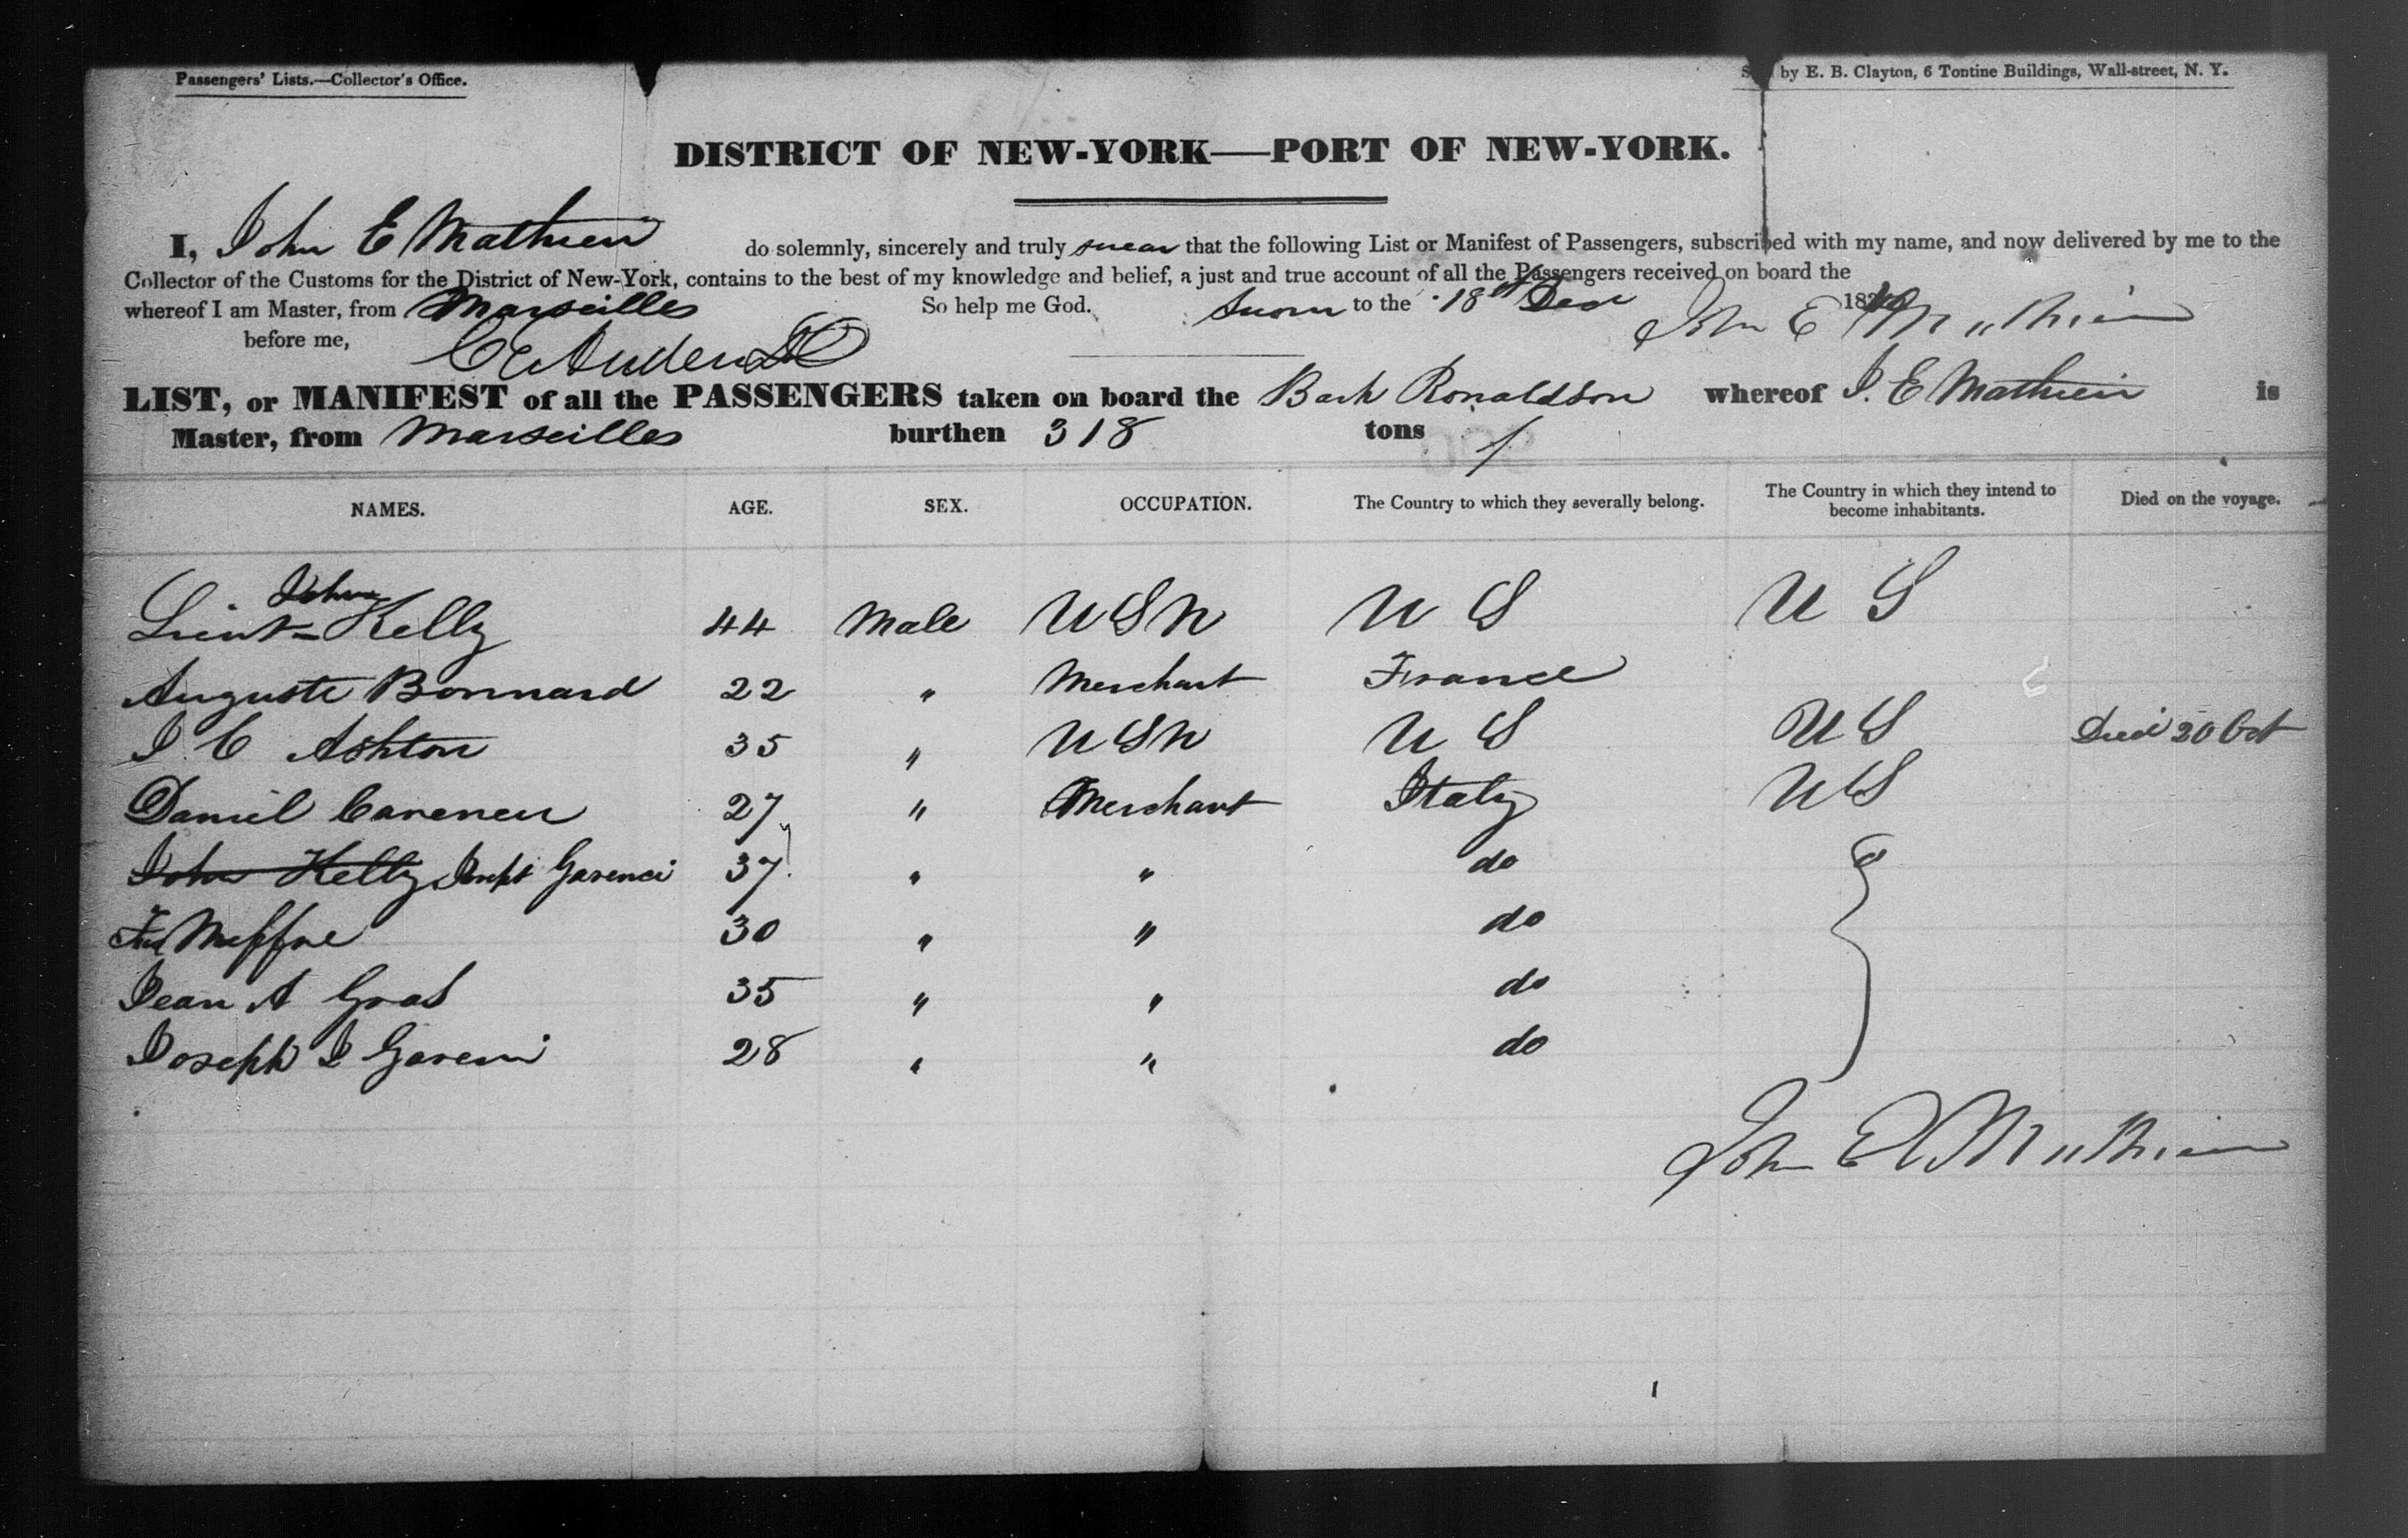 Passengers' Lists.—Collector's Office.
by E. B. Clayton, 6 Tontine Buildings, Wall-street, N. Y.
DISTRICT OF NEW-YORK—PORT OF NEW-YORK.
I, John E Mathieu do solemnly, sincerely and truly swear that the following List or Manifest of Passengers, subscribed with my name, and now delivered by me to the
Collector of the Customs for the District of New-York, contains to the best of my knowledge and belief, a just and true account of all the Passengers received on board the
whereof I am Master, from Marseilles So help me God. Sworn to the 18th Dec 18
before me, John E Mathieu
LIST, or MANIFEST of all the PASSENGERS taken on board the Bark Ronaldson whereof J. E Mathieu is
Master, from Marseilles burthen 318 tons
NAMES. AGE. SEX. OCCUPATION. The Country to which they severally belong. The Country in which they intend to become inhabitants. Died on the voyage.
Lieut John Kelly 44 Male USN U S U S
Auguste Bonnard 22 " Merchant France
J C Ashton 35 " USN U S U S Died 20 Oct
Daniel Careneu 27 " Merchant Italy U S
John Kelly Joseph Garenci 37 " " do
Meffre 30 " " do
Jean A Gras 35 " " do
Joseph J Gareni 28 " " do
John E Mathieu